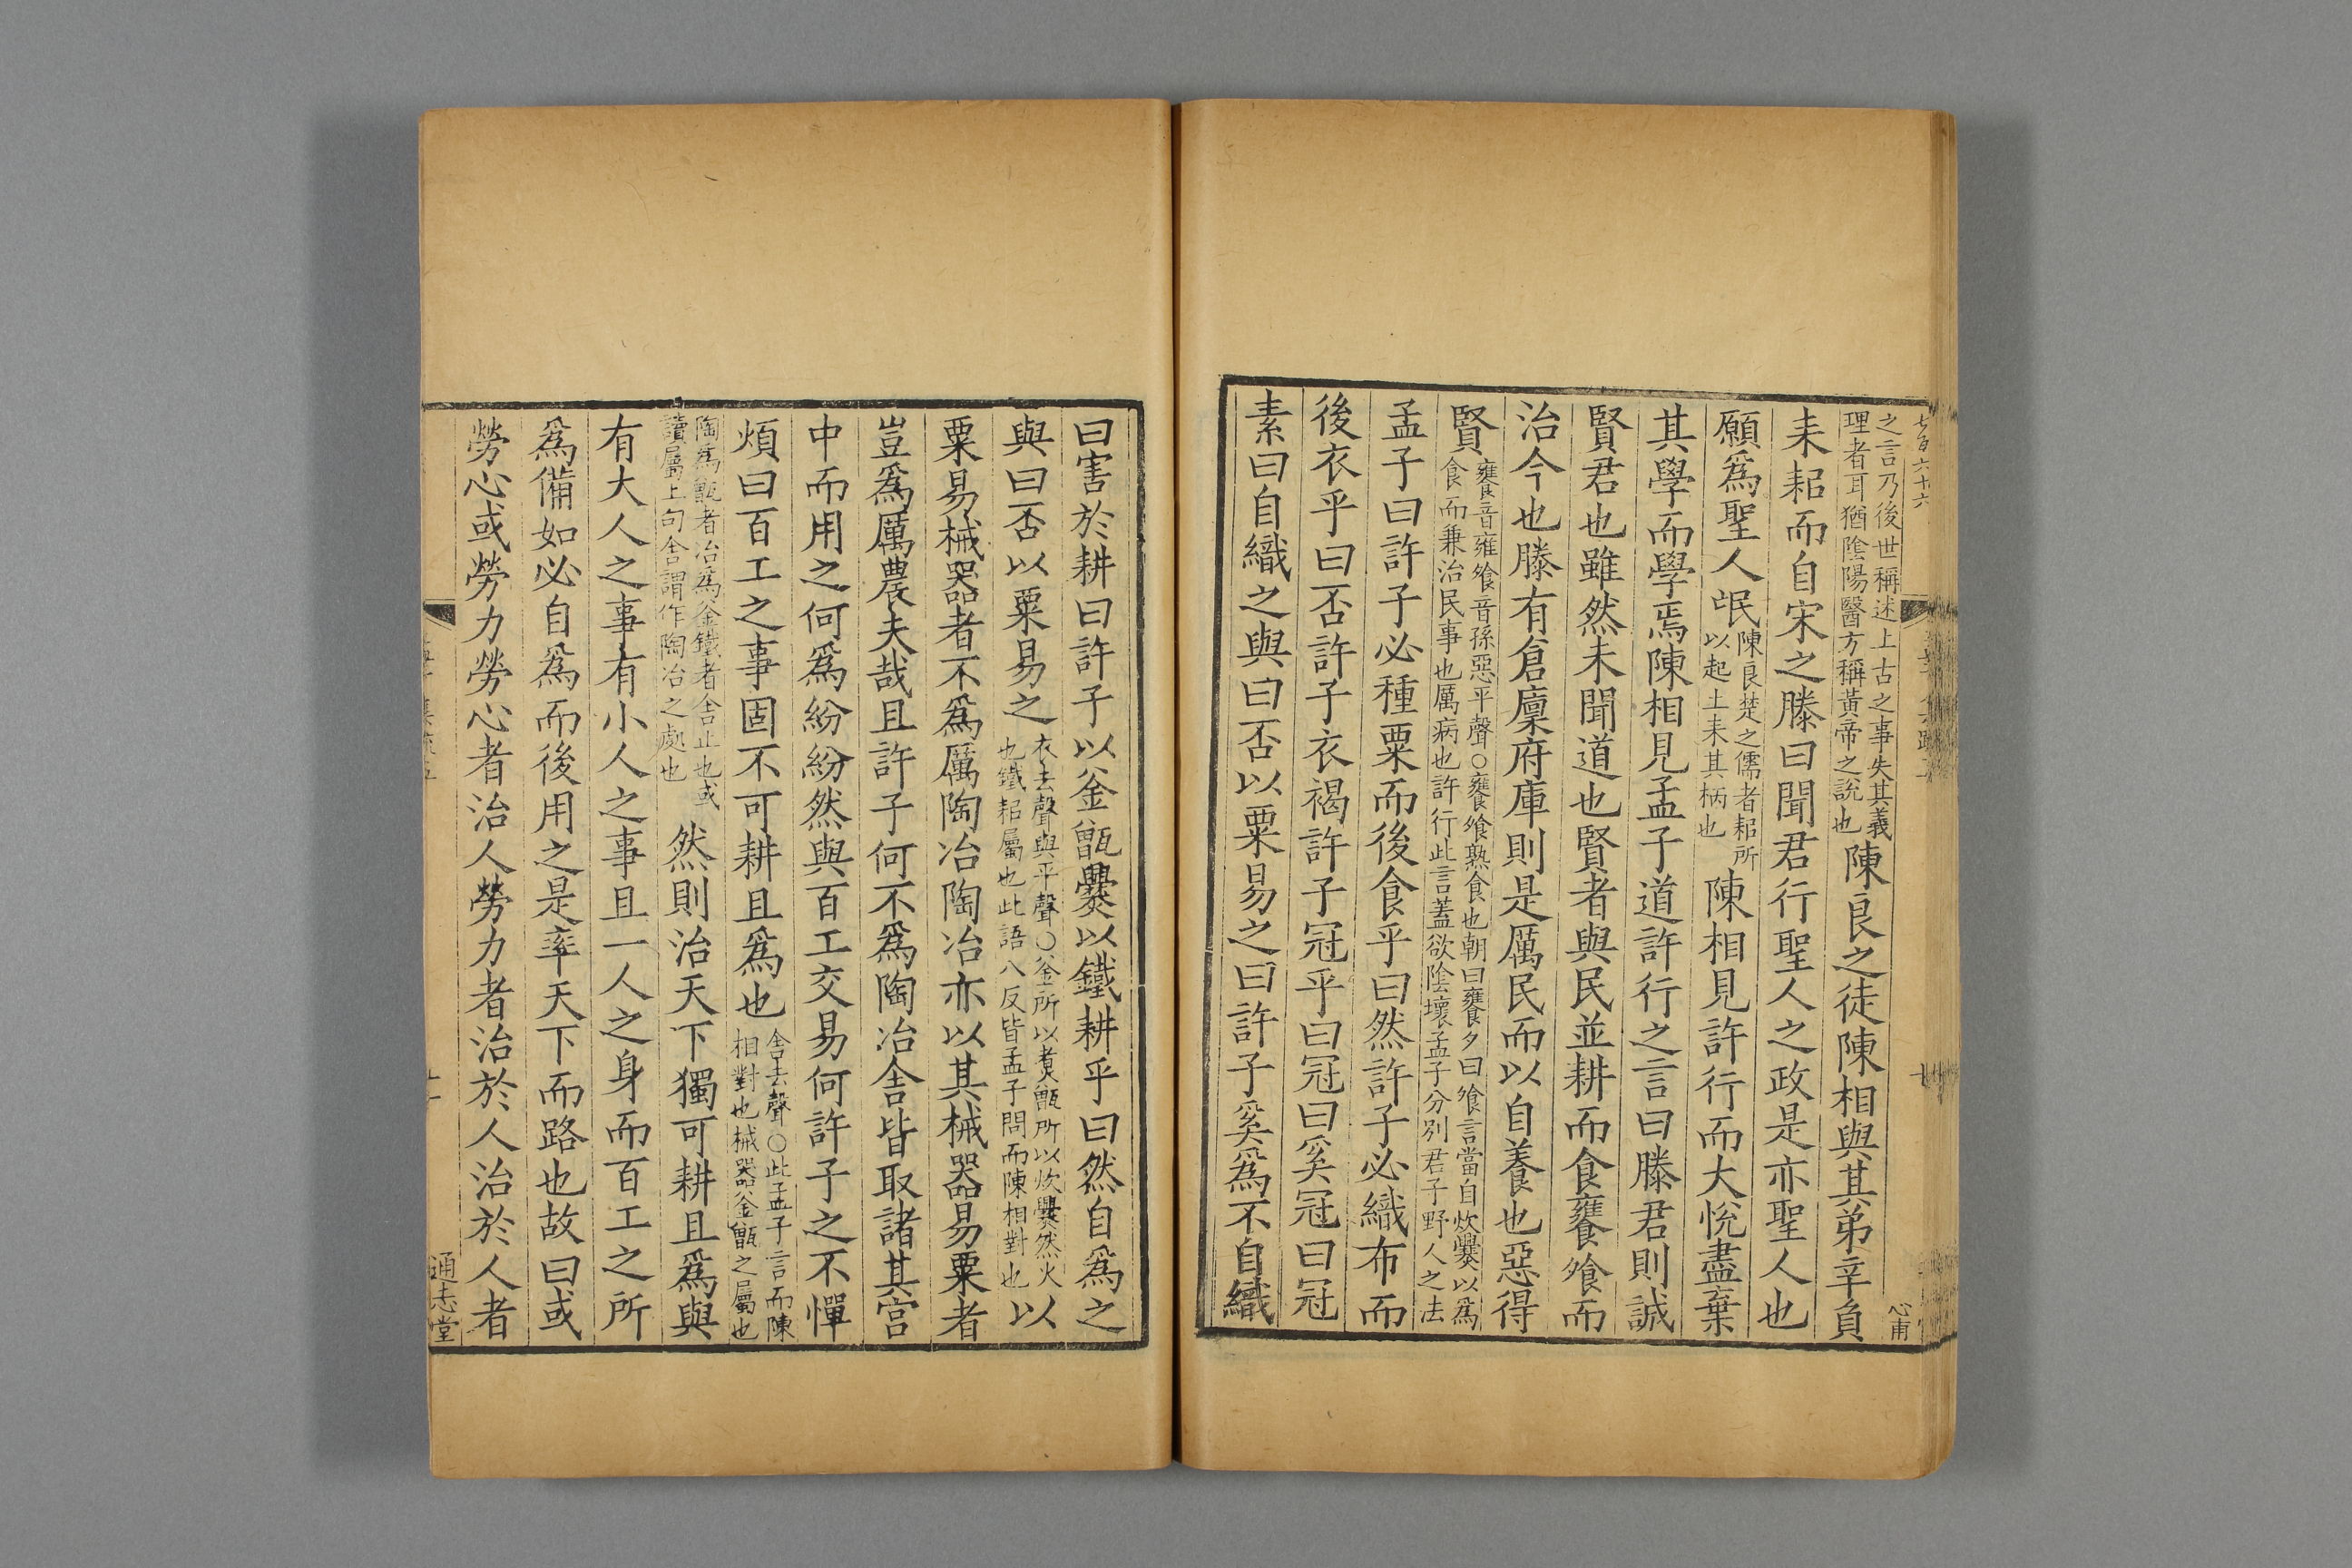 之言乃後世稱述上古之事失其義
理者耳猶陰陽醫方稱黃帝之說也
陳良之徒陳相與其弟辛負
耒耜而自宋之滕曰聞君行聖人之政是亦聖人也
願爲聖人氓
陳良楚之儒者耜所
以起土耒其柄也
陳相見許行而大悅盡棄
其學而學焉陳相見孟子道許行之言曰滕君則誠
賢君也雖然未聞道也賢者與民並耕而食饔飧而
治今也滕有倉廩府庫則是厲民而以自養也惡得
賢
饔音雍飧音孫惡平聲○饔飧熟食也朝曰饔夕曰飧言當自炊爨以爲
食而兼治民事也厲病也許行此言蓋欲陰壞孟子分別君子野人之法
孟子曰許子必種粟而後食乎曰然許子必織布而
後衣乎曰否許子衣褐許子冠乎曰冠曰奚冠曰冠
素曰自織之與曰否以粟易之曰許子奚爲不自織
心甫
曰害於耕曰許子以釜甑爨以鐵耕乎曰然自爲之
與曰否以粟易之
衣去聲與平聲○釜所以煮甑所以炊爨然火
也鐵耜屬也此語八反皆孟子問而陳相對也
以
粟易械器者不爲厲陶冶陶冶亦以其械器易粟者
豈爲厲農夫哉且許子何不爲陶冶舍皆取諸其宮
中而用之何爲紛紛然與百工交易何許子之不憚
煩曰百工之事固不可耕且爲也
舍去聲○此孟子言而陳
相對也械器釜甑之屬也
陶爲甑者冶爲釜鐵者舍止也或
讀屬上句舍謂作陶冶之處也
然則治天下獨可耕且爲與
有大人之事有小人之事且一人之身而百工之所
爲備如必自爲而後用之是率天下而路也故曰或
勞心或勞力勞心者治人勞力者治於人治於人者
通志堂